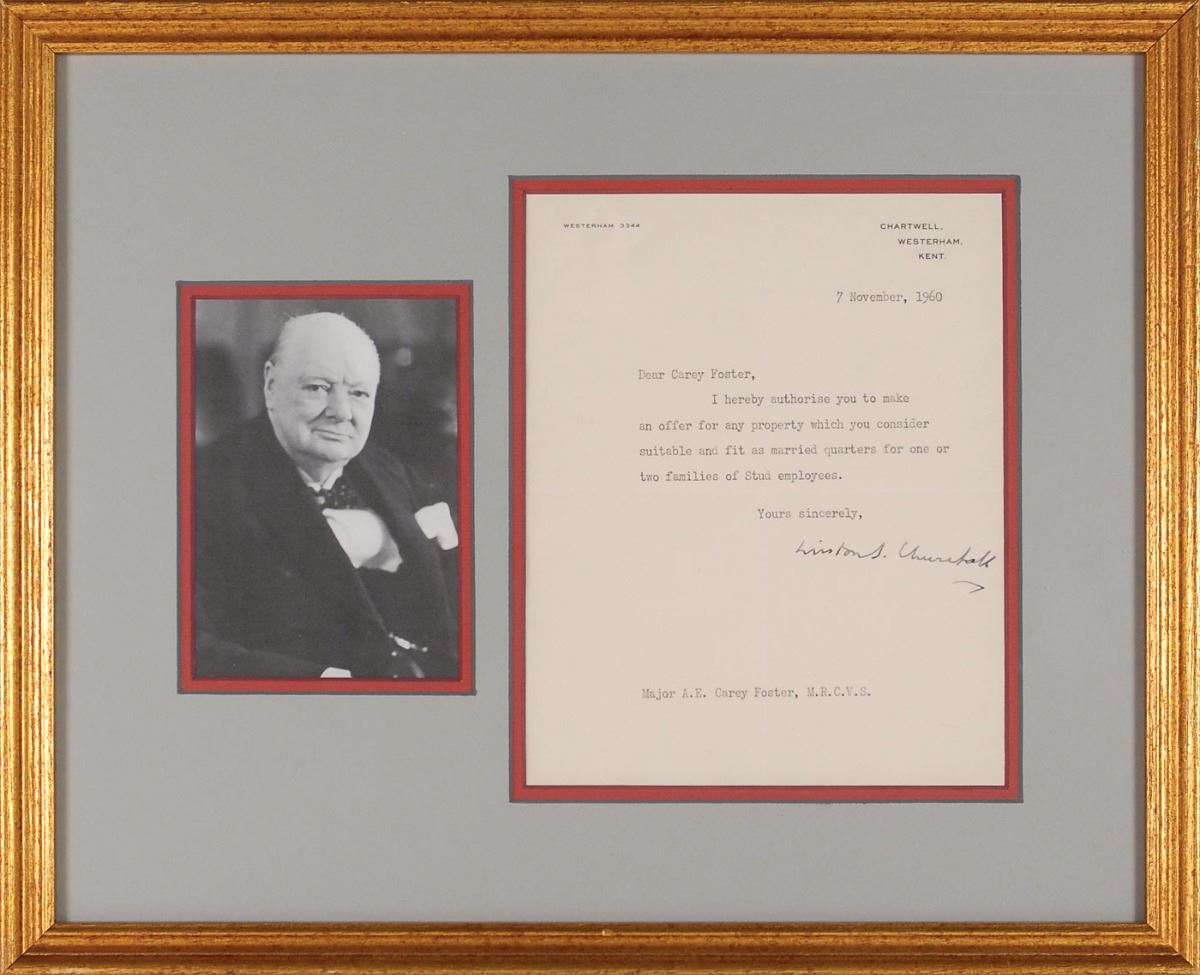 WESTERHAM 3344
CHARTWELL,
WESTERHAM,
KENT.
7 November, 1960
Dear Carey Foster,
I hereby authorise you to make
an offer for any property which you consider
suitable and fit as married quarters for one or
two families of Stud employees.
Yours sincerely,
Winston S. Churchill
Major A.E. Carey Foster, M.R.C.V.S.